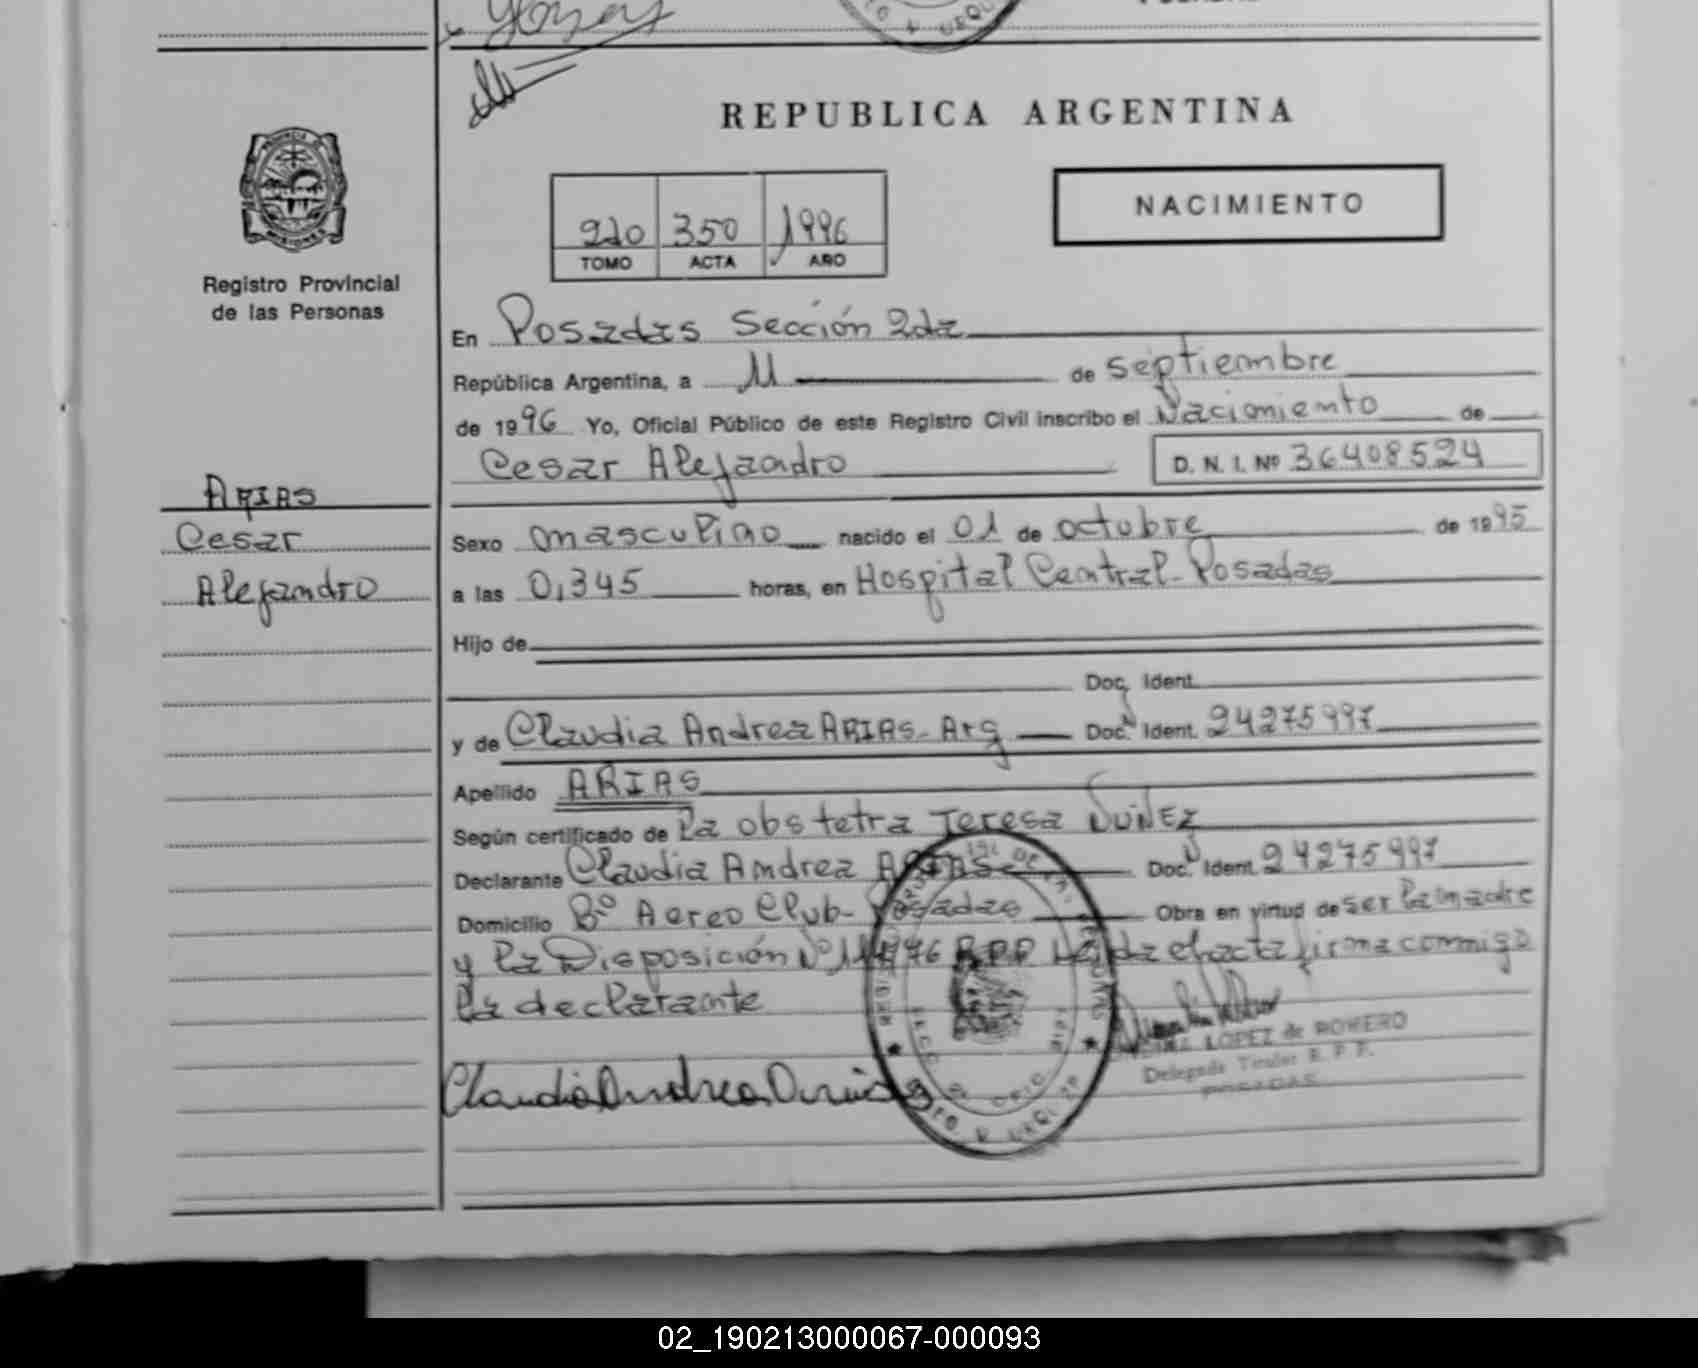 REPUBLICA ARGENTINA
PROVINCIA DE
MISIONES
Registro Provincial
de las Personas
2do 350 1996
TOMO ACTA AÑO
NACIMIENTO
En Posadas Sección 2da
República Argentina, a 11 de septiembre
de 1996 Yo, Oficial Público de este Registro Civil inscribo el Nacimiento de
Cesar Alejandro D. N. I. Nº 36408524
ARIAS
Cesar
Alejandro
Sexo masculino nacido el 01 de octubre de 1995
a las 0,345 horas, en Hospital Central - Posadas
Hijo de
Doc. Ident.
y de Claudia Andrea ARIAS - Arg Doc. Ident. 24275997
Apellido ARIAS
Según certificado de la obstetra Teresa NUÑEZ
Declarante Claudia Andrea ARIAS Doc. Ident. 24275997
Domicilio Bº Aereo Club - Posadas Obra en virtud de ser la madre
y la Disposición Nº R.P.P Leída el acta firma conmigo
la declarante
Claudia Andrea Arias
LOPEZ de ROMERO
Delegada Titular R. P. P.
POSADAS
02_190213000067-000093